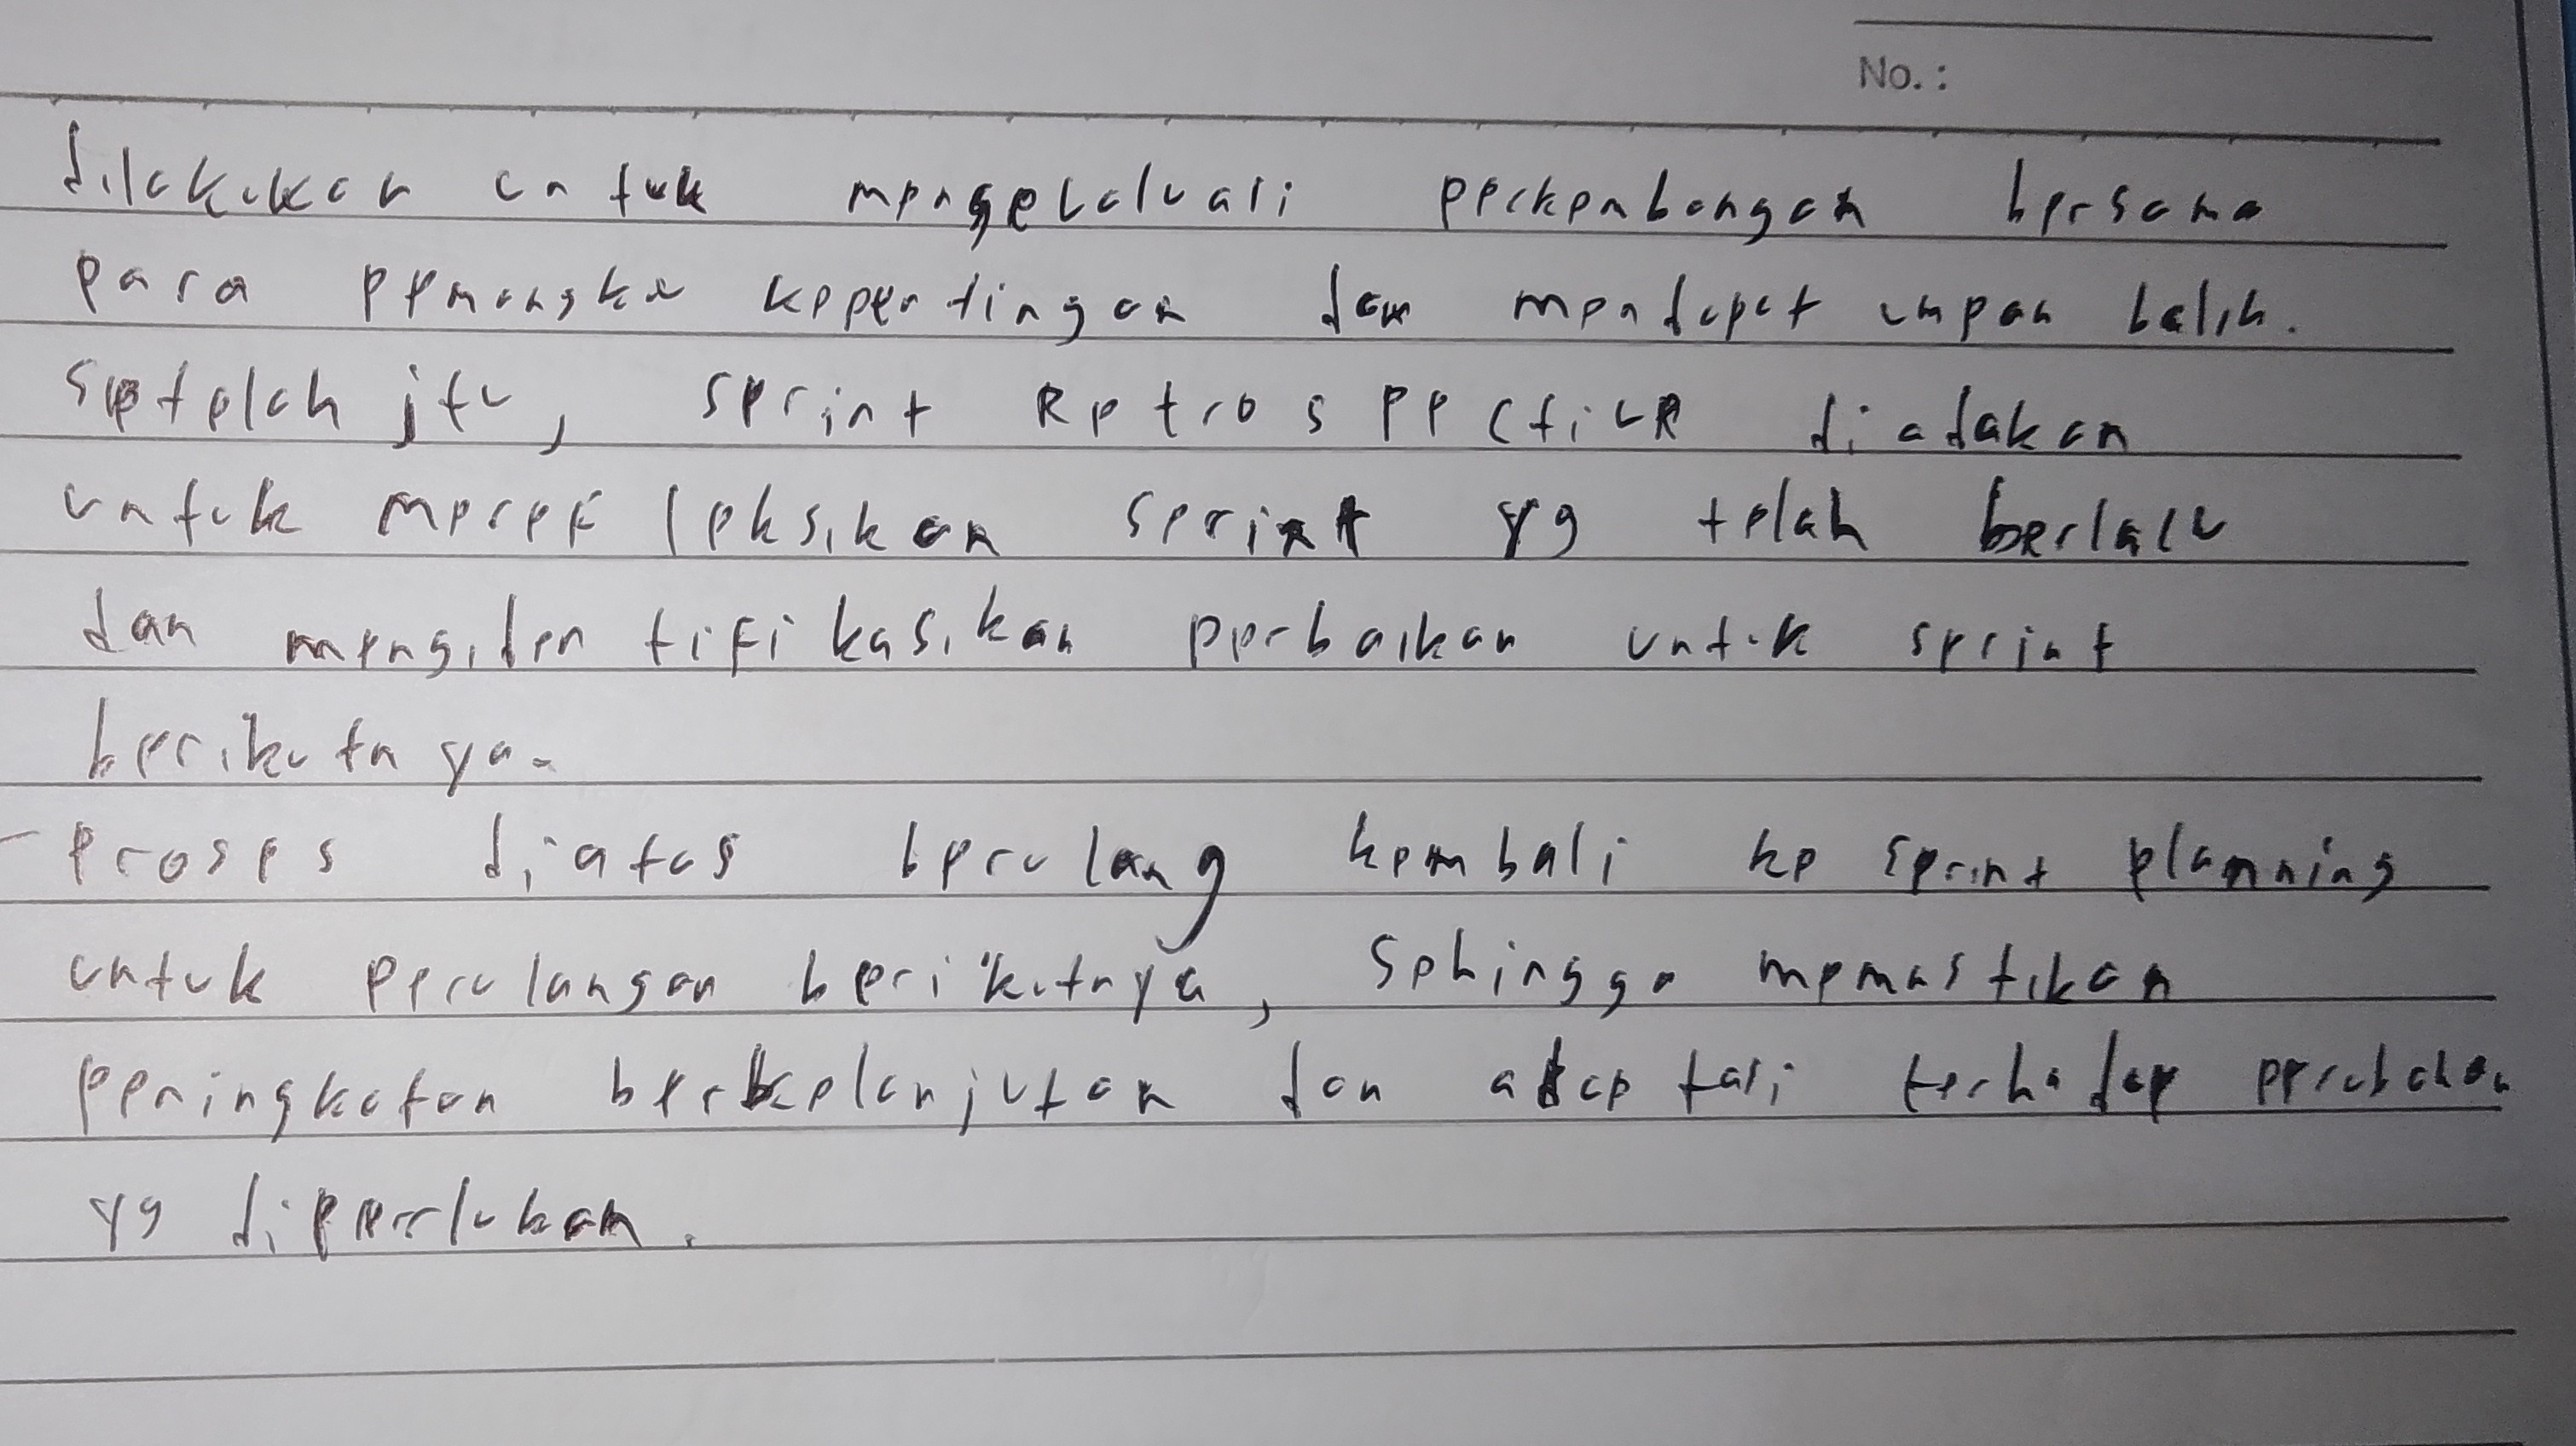 No. :
dilakukan untuk mengevaluasi perkembangan bersama
para pemangku kepentingan dan mendapat umpan balik.
Setelah itu, sprint Retrospective diadakan
untuk merefleksikan sprint yg telah berlalu
dan mengidentifikasikan perbaikan untuk sprint
berikutnya.
- Proses diatas berulang kembali ke sprint planning
untuk perulangan berikutnya, sehingga memastikan
peningkatan berkelanjutan dan adaptasi terhadap perubahan
yg diperlukan.